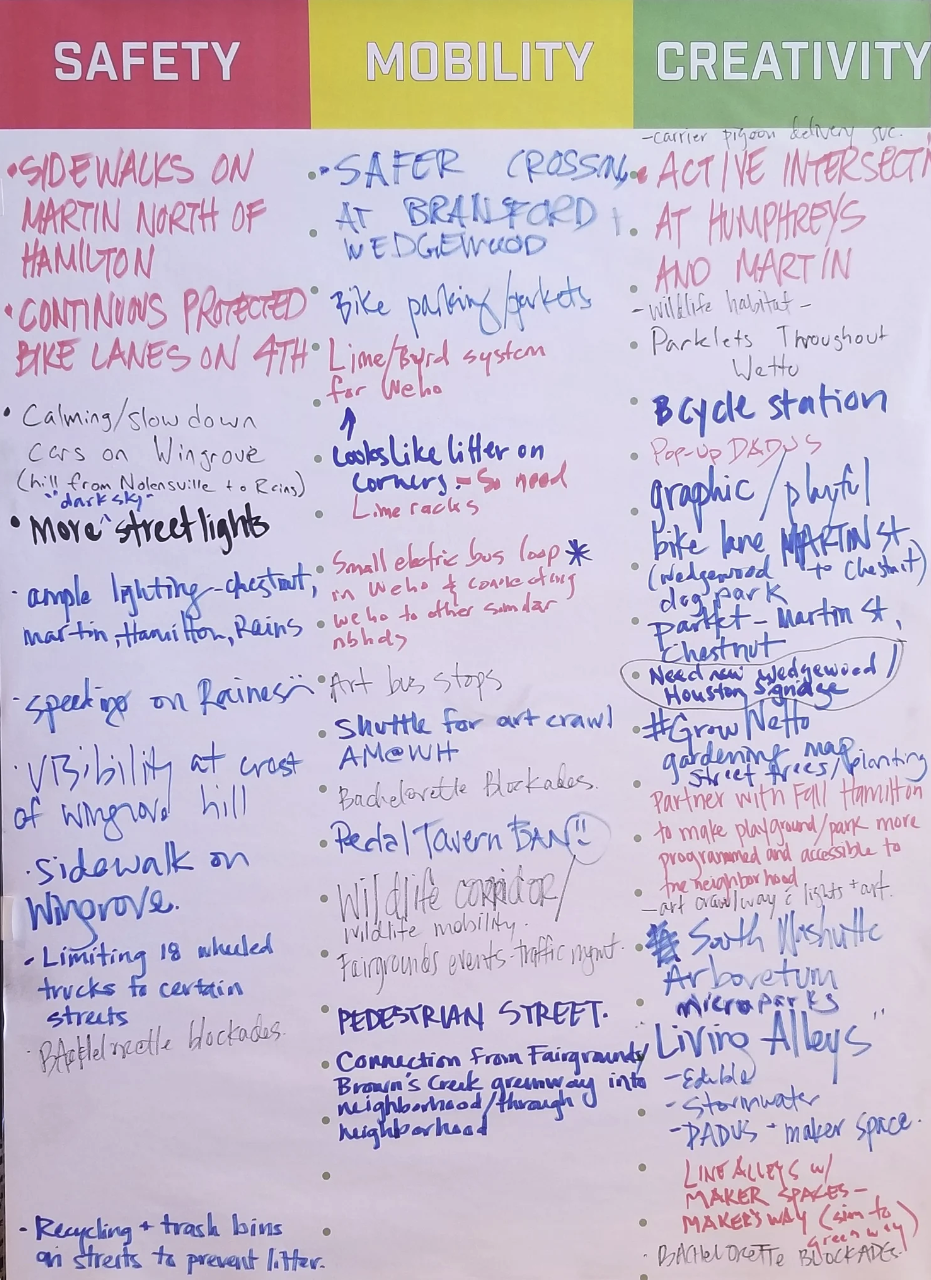 SAFETY
• SIDEWALKS ON
MARTIN NORTH OF
HAMILTON
• CONTINUOUS PROTECTED
BIKE LANES ON 4TH
• Calming/slow down
cars on Wingrove
(hill from Nolensville to Rains)
"dark sky"
• More ^ street lights
· ample lighting - chestnut,
martin, Hamilton, Rains
· speeding on Raines
· Visibility at crest
of wingrove hill
· sidewalk on
Wingrove.
- Limiting 18 wheeled
trucks to certain
streets
· Bachelorette blockades.
- Recycling + trash bins
on streets to prevent litter.
MOBILITY
• SAFER CROSSING
AT BRANSFORD
WEDGEWOOD
Bike parking/
Lime/Byrd system
for Weho
↑
Looks like litter on
corners. - So need
Lime racks
Small electric bus loop *
in Weho & connecting
weho to other similar
nbhds
Art bus stops
Shuttle for art crawl
AM@WH
Bachelorette Blockades.
Pedal Tavern BAN!!
Wildlife corridor/
Wildlife mobility.
Fairgrounds events - traffic mgmt.
PEDESTRIAN STREET.
Connection from Fairgrounds/
Brown's Creek greenway into
neighborhood/through
neighborhood
CREATIVITY
- carrier pigeon delivery svc.
• ACTIVE INTERSECTI
AT HUMPHREYS
AND MARTIN
- Wildlife habitat -
Parklets Throughout
WeHo
Bcycle station
Pop-Up DADUS
graphic / playful
bike lane MARTIN St
(Wedgewood to Chestnut)
dog park
parklet - Martin St,
Chestnut
Need new Wedgewood/
Houston Signage
#GrowWeHo
gardening map
street trees/planting
Partner with Fall Hamilton
to make playground/park more
programmed and accessible to
the neighborhood
- art crawl/way c lights + art.
South Nashville
Arboretum
micro parks
Living Alleys"
- Edible
- Stormwater
- DADUS + maker space.
LINE ALLEYS W/
MAKER SPACES -
MAKER'S WAY (sim to
greenway)
· BACHELORETTE BLOCKADE.